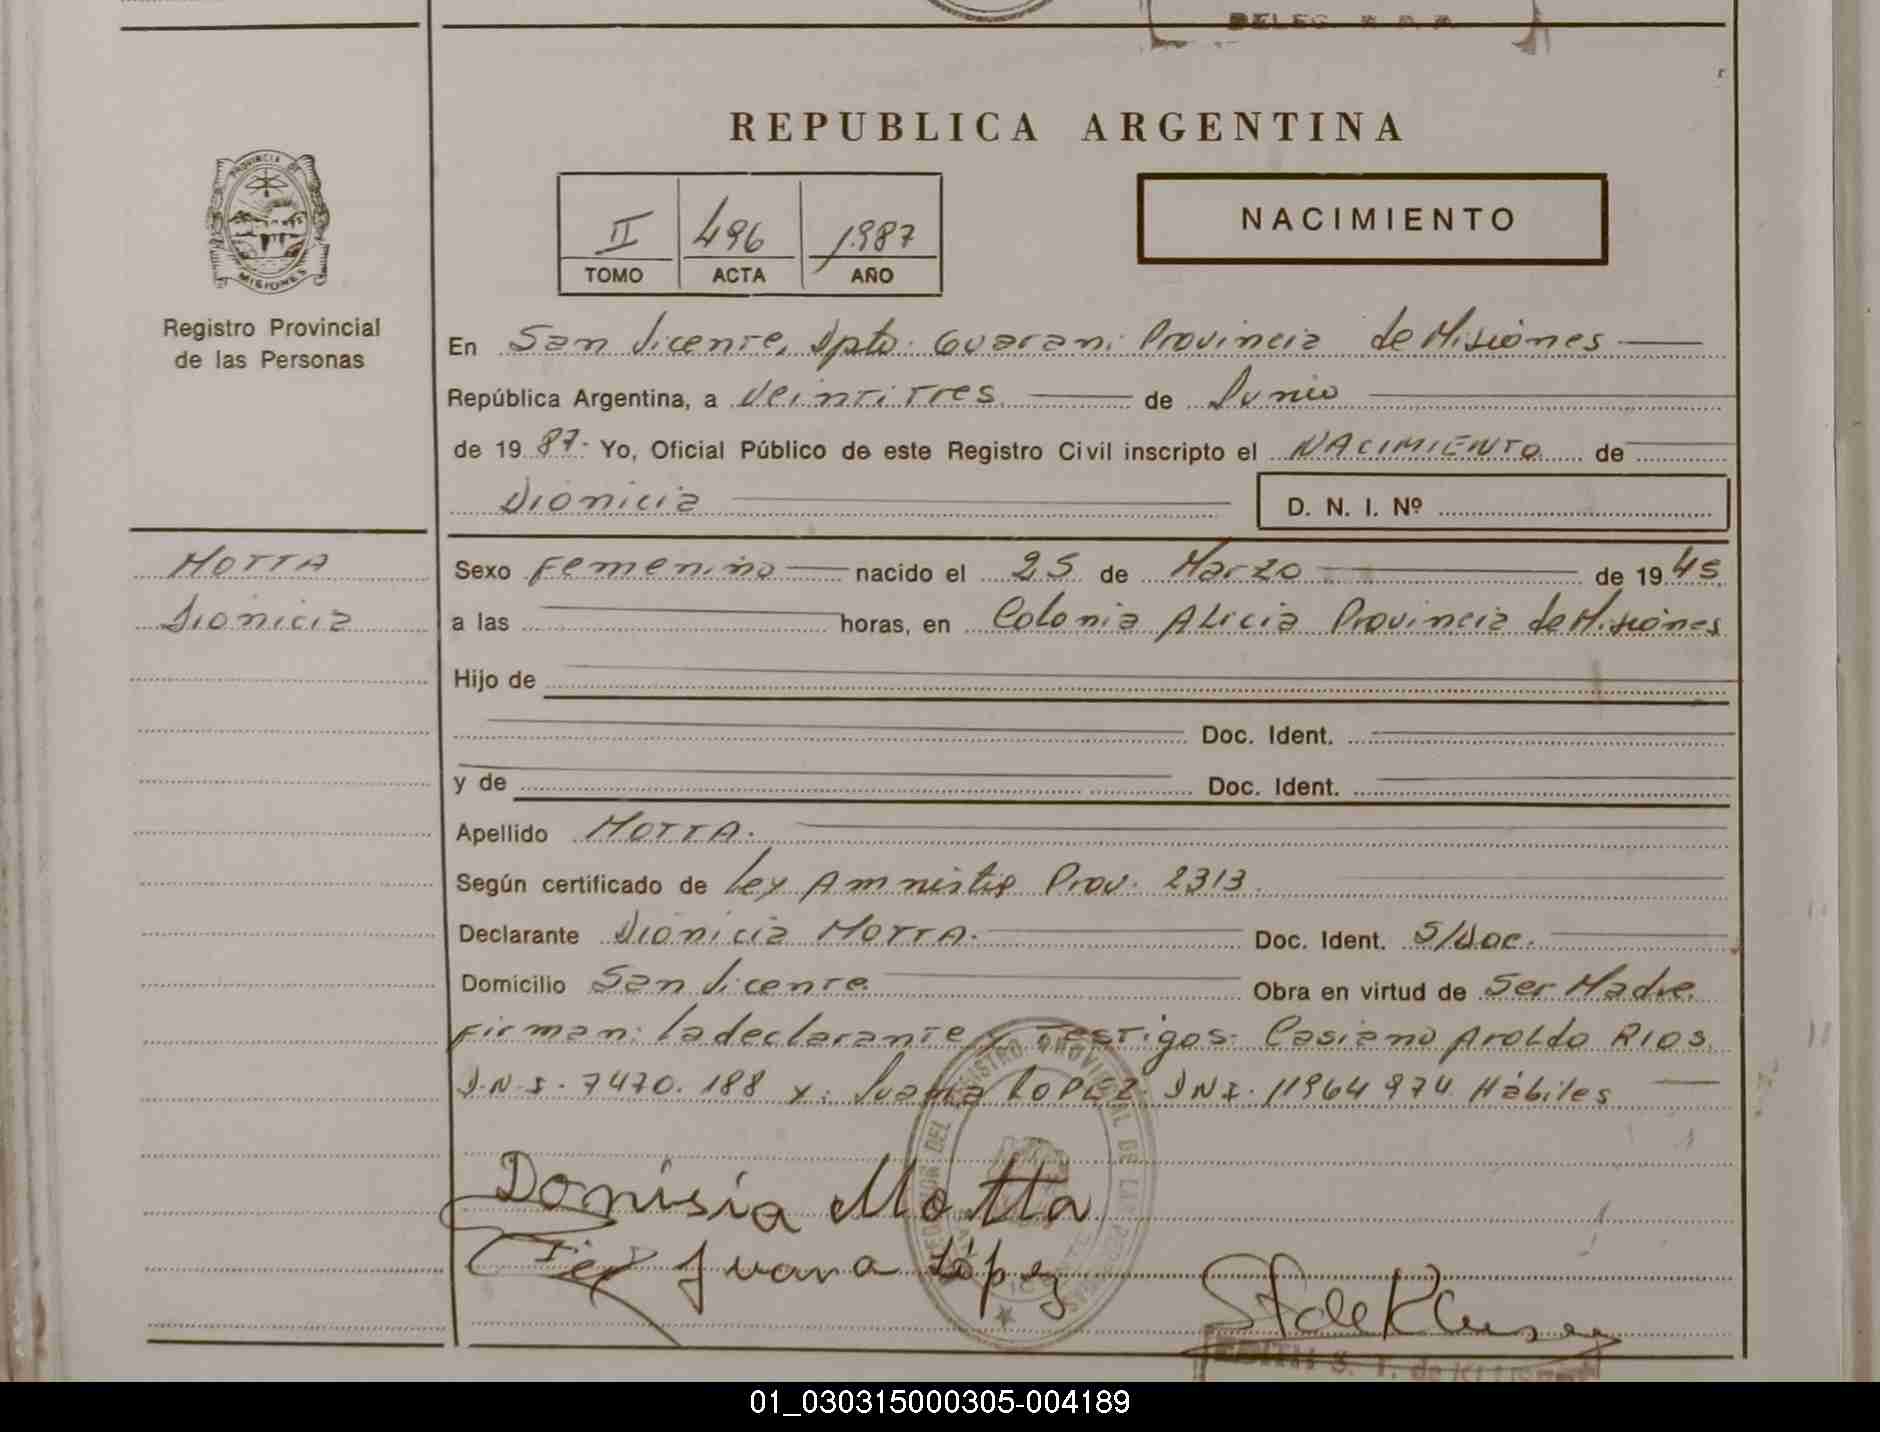 DELEG
REPUBLICA ARGENTINA
PROVINCIA DE
MISIONES
Registro Provincial
de las Personas
II 496 1987
TOMO ACTA AÑO
NACIMIENTO
En San Vicente, Dpto. Guarani Provincia de Misiones
República Argentina, a Veintitres de Junio
de 19 87. Yo, Oficial Público de este Registro Civil inscripto el NACIMIENTO de
Dionicia D. N. I. Nº
MOTTA
Dionicia
Sexo Femenino nacido el 25 de Marzo de 19 45
a las horas, en Colonia Alicia Provincia de Misiones
Hijo de
Doc. Ident.
y de Doc. Ident.
Apellido MOTTA.
Según certificado de Ley Amnistia Prov. 2313.
Declarante Dionicia MOTTA. Doc. Ident. S/doc.
Domicilio San Vicente Obra en virtud de Ser Madre
Firman: la declarante y Testigos: Casiano Aroldo RIOS
D.N.I. 7470.188 y: Juana LOPEZ DNI. 11964974 Hábiles
Donisia Motta
Juana López
01_030315000305-004189